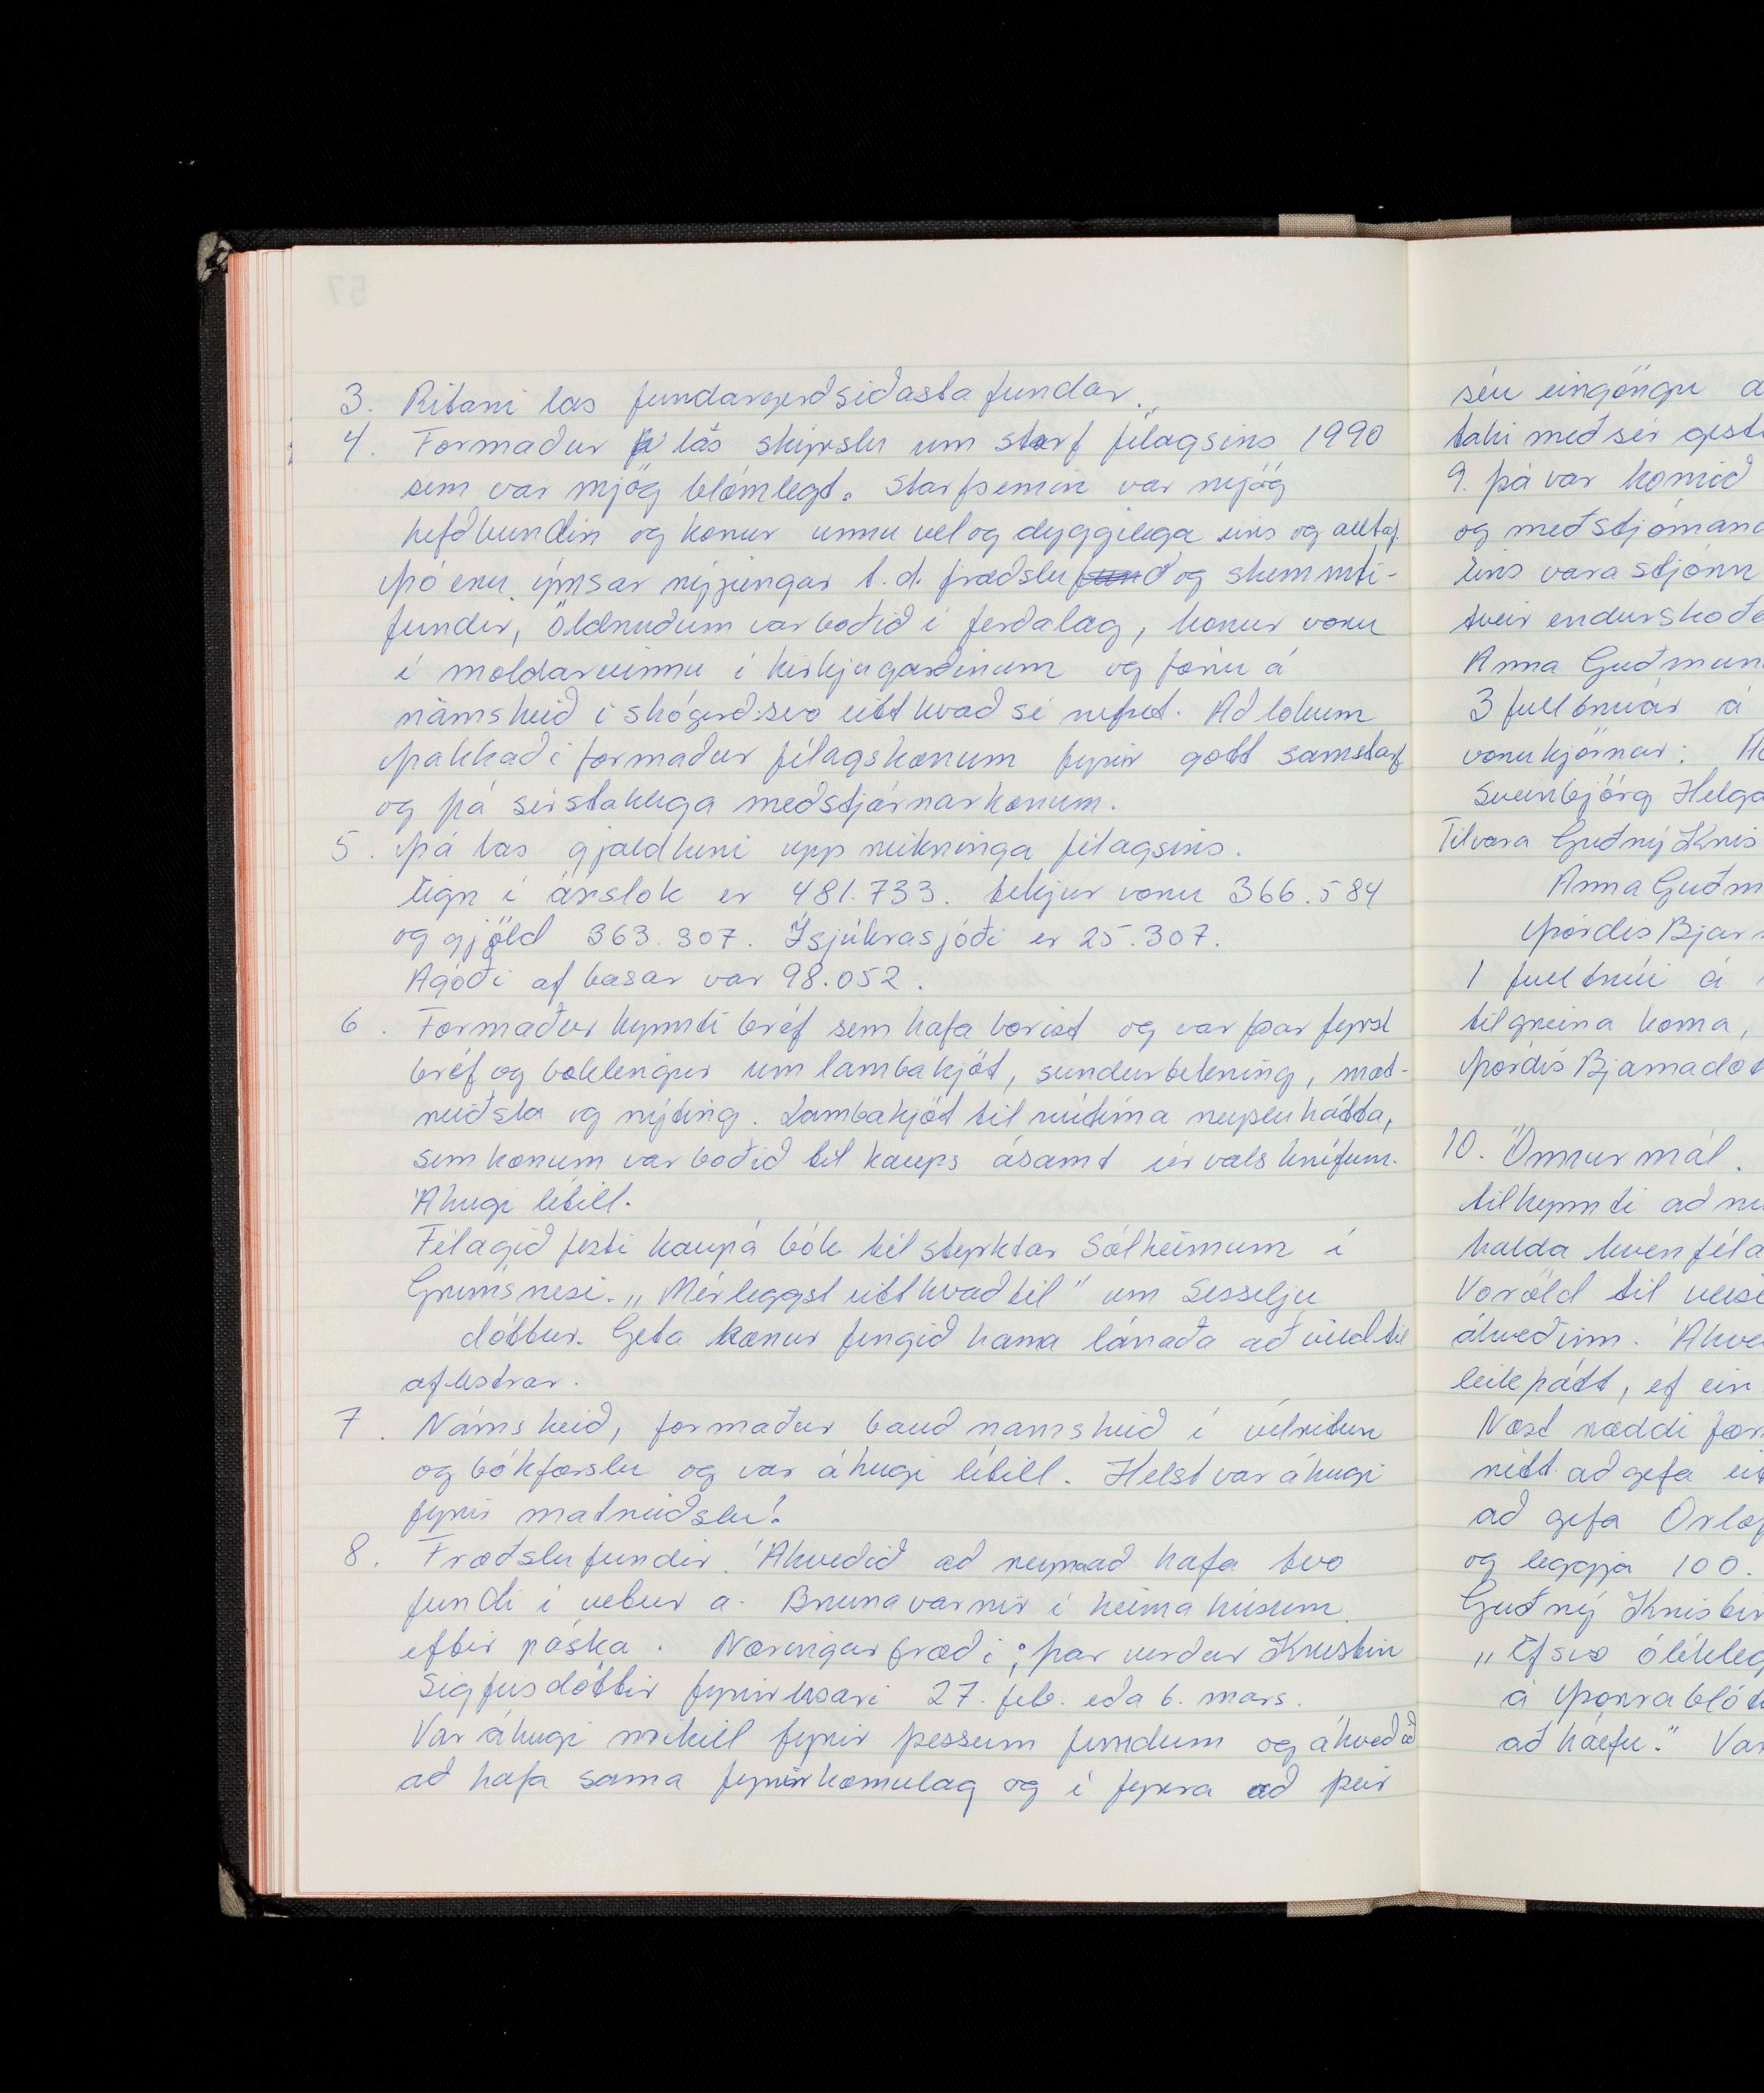 3. Ritari las fundargerð síðasta fundar.
4. Formaður lás skýrslu um starf félagsins 1990
sem var mjög blómlegt. Starfsemin var mjög
hefðbundin og konur unnu vel og dyggilega eins og alltaf
þó eru ýmsar nýjungar t.d. fræðslu og skemmti-
fundir, öldruðum var boðið í ferðalag, konur voru
í moldarvinnu í kirkjugarðinum og fóru á
námskeið í skógerð svo eitthvað sé nefnt. Að lokum
þakkaði formaður félagskonum fyrir gott samstarf
og þá sérstaklega meðstjórnarkonum.
5. Þá las gjaldkeri upp reikninga félagsins.
Eign í árslok er 481.733. tekjur voru 366.584
og gjöld 363.307. Í sjúkrasjóði er 25.307.
Agóði af basar var 98.052.
6. Formaður kynnti bréf sem hafa borist og var þar fyrst
bréf og bæklingur um lambakjöt, sundurtekning, mat-
reiðsla og nýting. Lambakjöt til nútíma neysluhátta,
sem konum var boðið til kaups ásamt úrvals hnífum.
Áhugi lítill.
Félagið festi kaup á bók til styrktar Sólheimum í
Grímsnesi. „Mér leggst eitthvað til" um Sesselju
dóttur. Geta konur fengið hana lánaða að vild til
aflestrar.
7. Námskeið, formaður bauð namskeið í vélritun
og bókfærslu og var áhugi lítill. Helst var áhugi
fyrir matreiðslu!
8. Fræðslufundir. Ákveðið að reyna að hafa tvo
fundi í vetur a. Brunavarnir í heimahúsum
eftir páska. Næringarfræði; þar verður Kristín
Sigfusdóttir fyrirlesari 27. feb. eða 6. mars.
Var áhugi mikill fyrir þessum fundum og ákveðið
að hafa sama fyrirkomulag og í fyrra að þeir
séu eingöngu
taki með sér gesti
9. þá var komið
og meðstjórnand
eins varastjórn
tveir endurskoðe
Anna Guðmun
3 fulltrúar á
voru kjörnar:
Sveinbjörg Helga
Til vara Guðný Kris
Anna Guðm
Þórdís Bjar
1 fulltrúi á
til greina koma,
Þórdís Bjarnadót
10. Önnur mál.
tilkynnti að
halda kvenféla
Voröld til
ákveðinn. Ákve
leikþátt, ef ein
Næst ræddi for
rétt að gefa eit
að gefa Orlof
og leggja 100.
Guðný Kristin
„Ef svo ólíkleg
á þorrablót
að hætti." Var